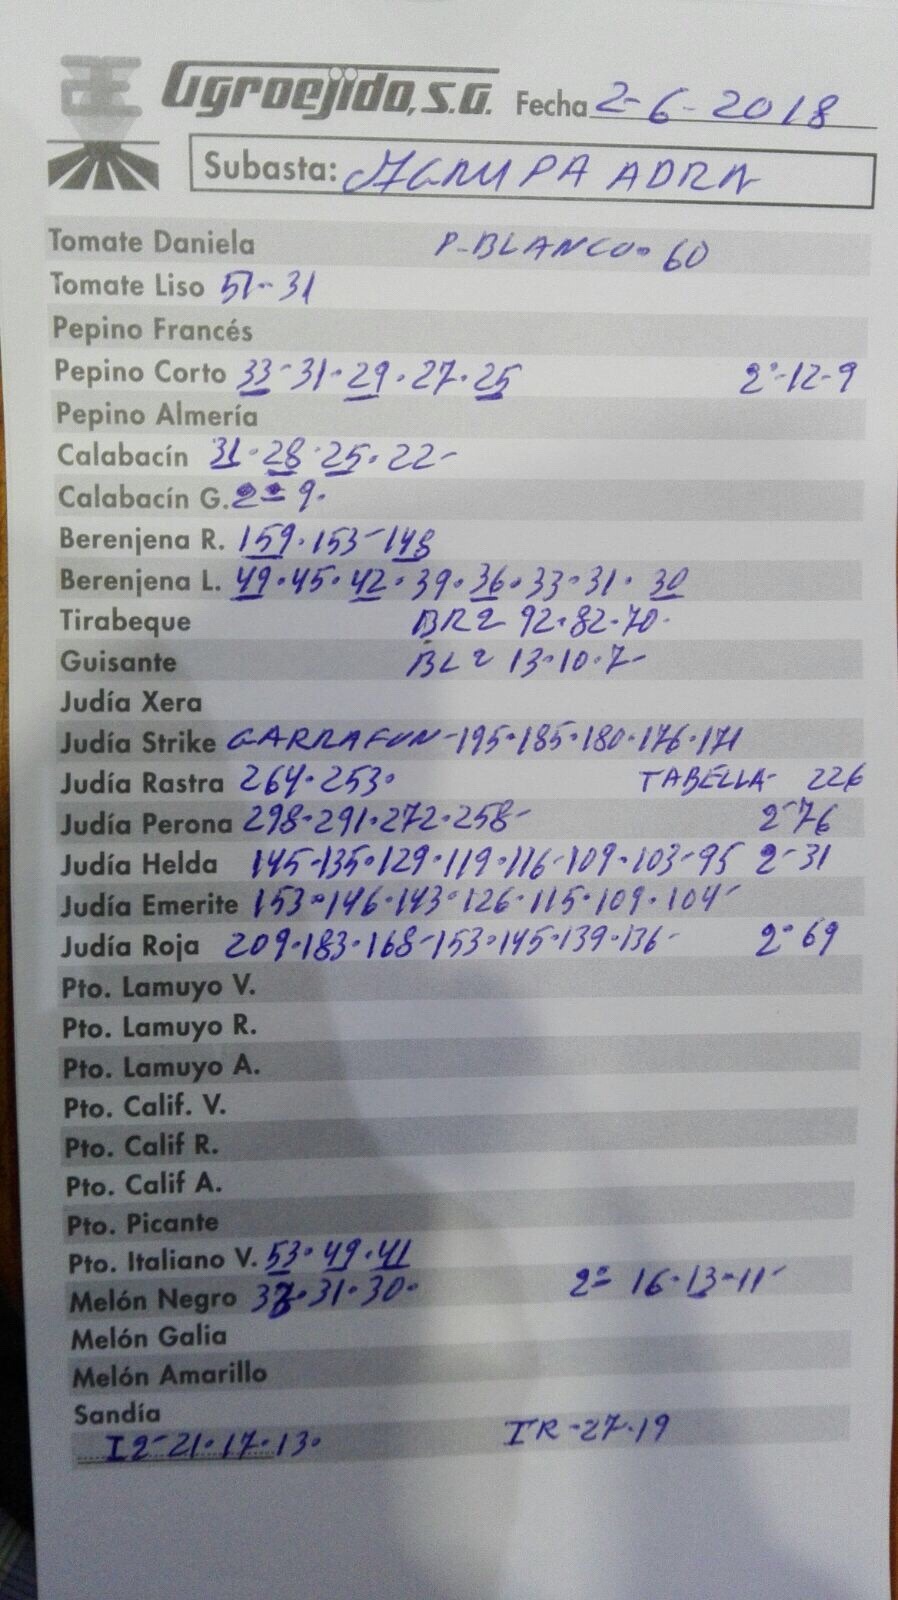 Agroejido, S.A. Fecha 2-6-2018
Subasta: AGRUPA ADRA
Tomate Daniela P-BLANCO. 60
Tomate Liso 51-31
Pepino Francés
Pepino Corto 33-31.29.27.25 2ª-12-9
Pepino Almería
Calabacín 31.28.25.22-
Calabacín G. 2ª 9.
Berenjena R. 159.153-148
Berenjena L. 49.45.42.39.36.33.31.30
Tirabeque BR2 92.82.70.
Guisante BL2 13.10.7-
Judía Xera
Judía Strike GARRAFON-195.185.180.176.171
Judía Rastra 264.253. TABELLA- 226
Judía Perona 298.291.272.258- 2-76
Judía Helda 145-135.129.119.116-109.103-95 2-31
Judía Emerite 153.146.143.126.115.109.104-
Judía Roja 209.183.168-153.145.139.136- 2ª 69
Pto. Lamuyo V.
Pto. Lamuyo R.
Pto. Lamuyo A.
Pto. Calif. V.
Pto. Calif R.
Pto. Calif A.
Pto. Picante
Pto. Italiano V. 53.49.41
Melón Negro 37.31.30. 2ª 16.13.11-
Melón Galia
Melón Amarillo
Sandía
I2-21.17.13. IR-27.19